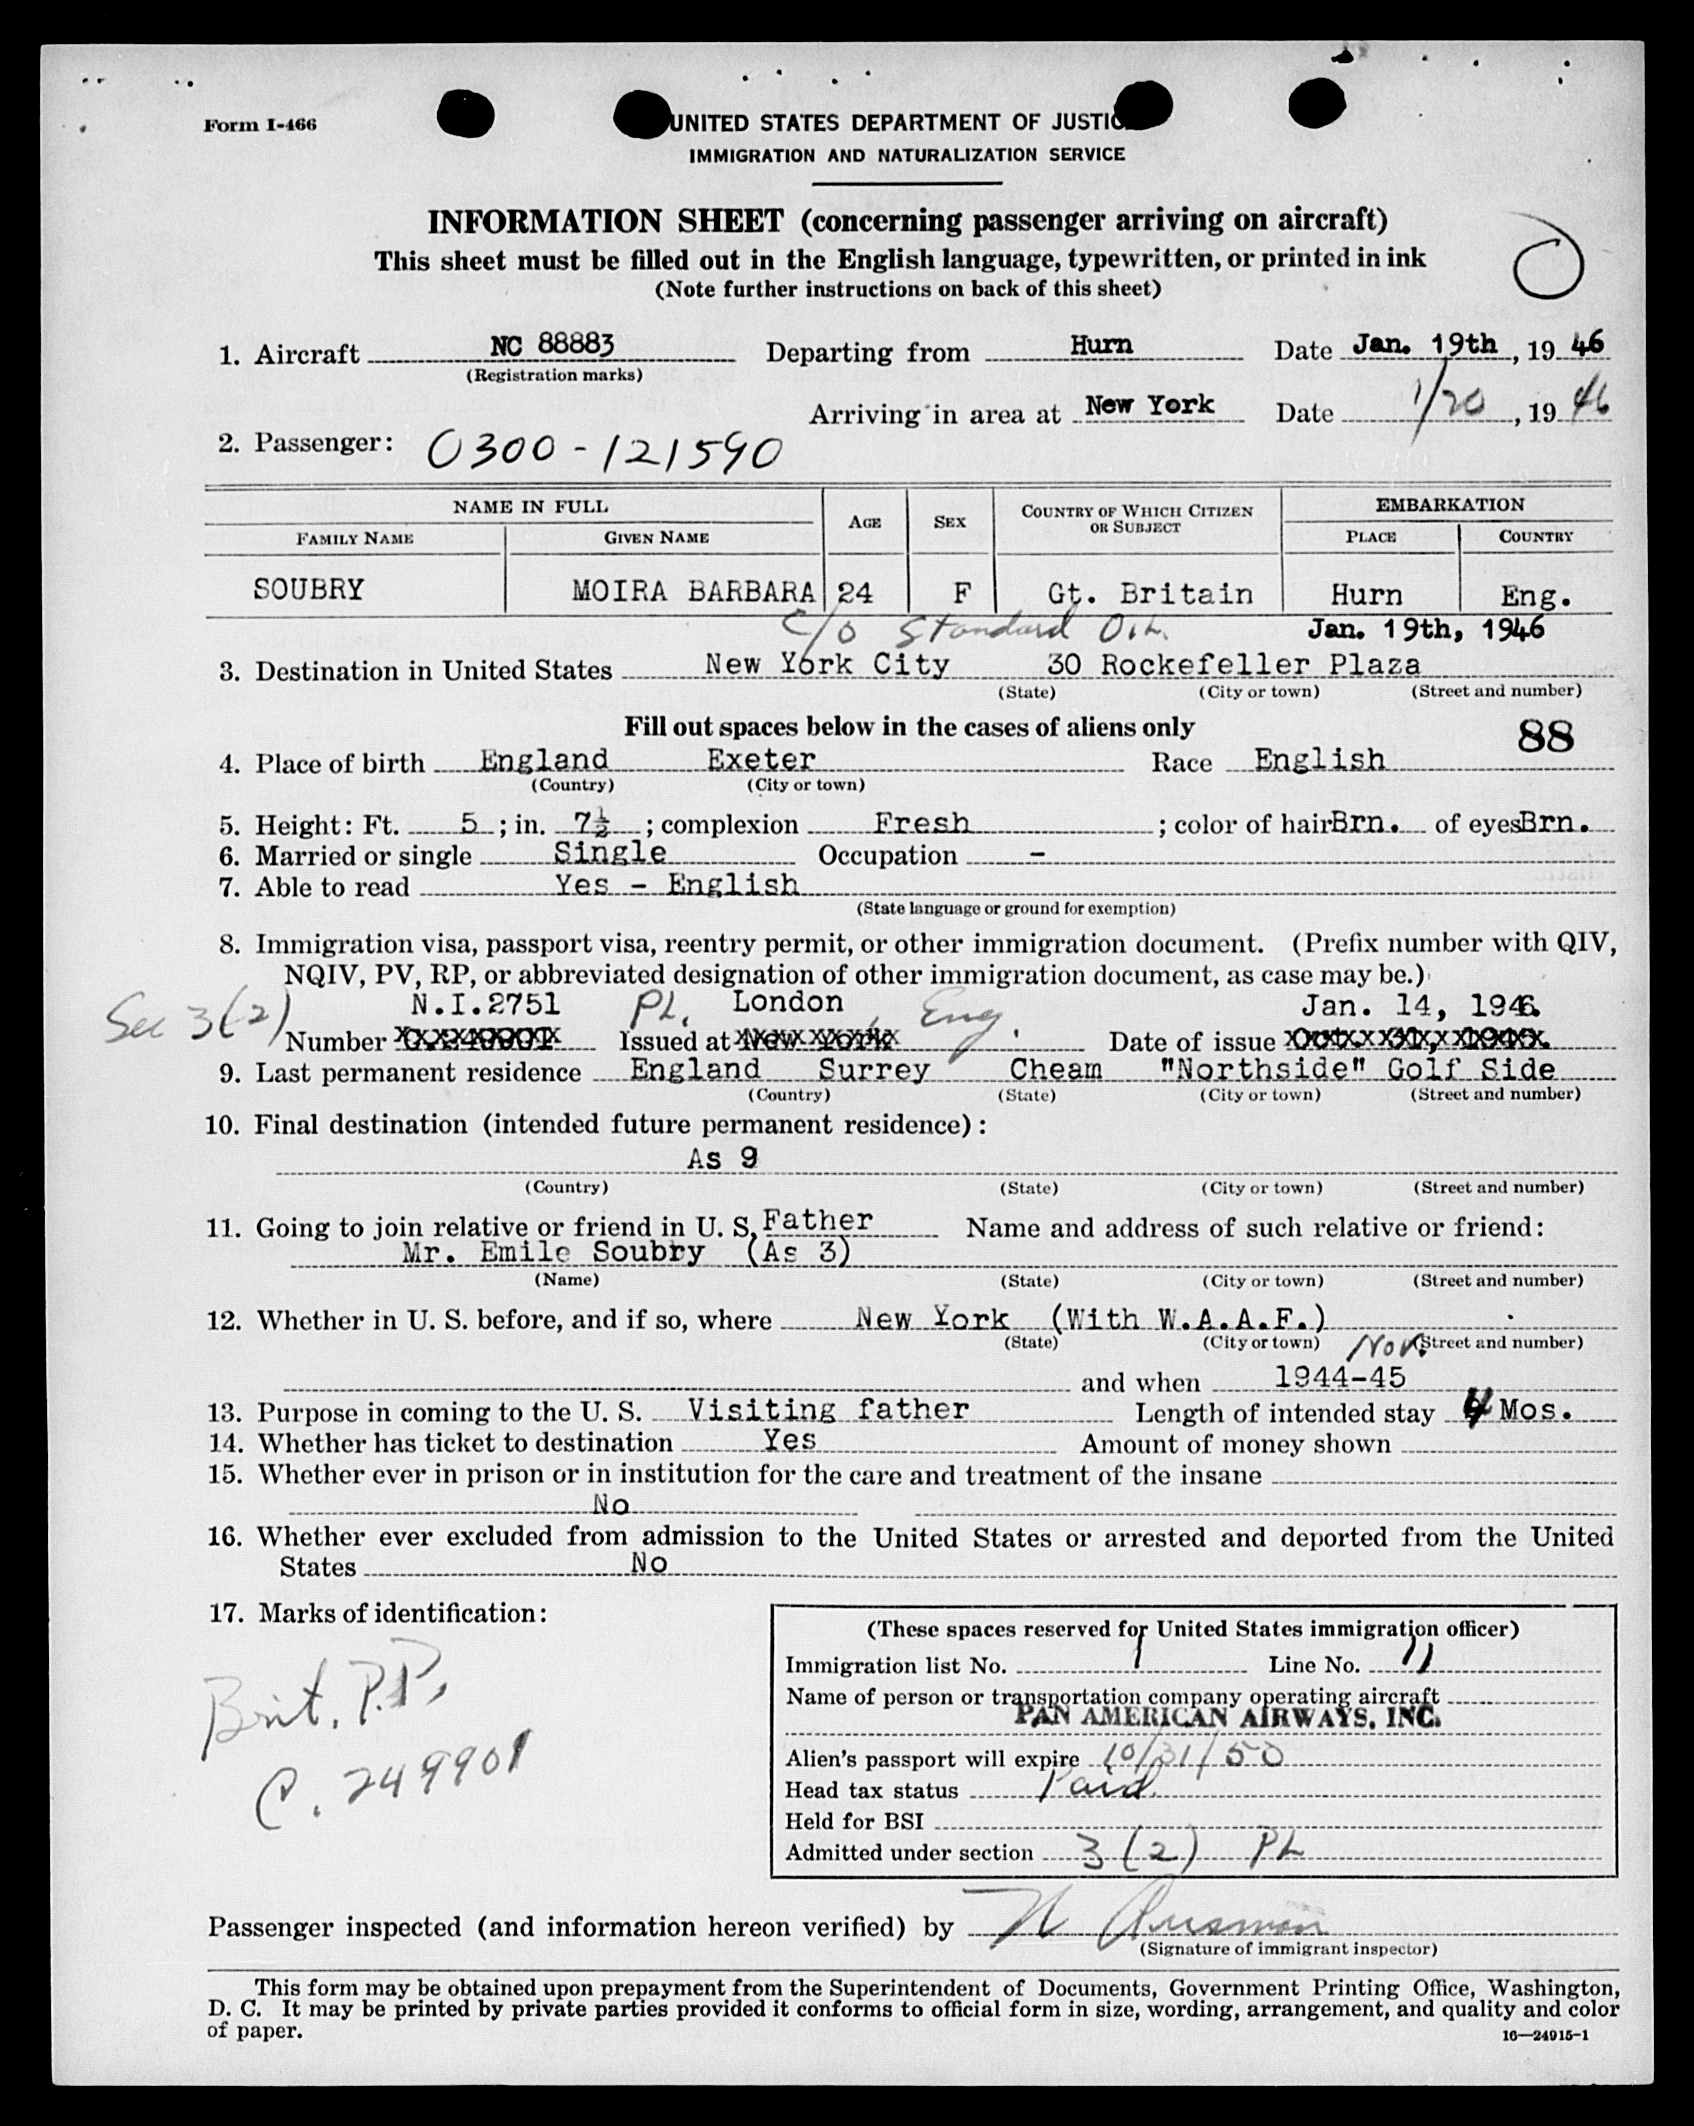 Form I-466
UNITED STATES DEPARTMENT OF JUSTIC
IMMIGRATION AND NATURALIZATION SERVICE
INFORMATION SHEET (concerning passenger arriving on aircraft)
This sheet must be filled out in the English language, typewritten, or printed in ink
(Note further instructions on back of this sheet)
1. Aircraft NC 88883 Departing from Hurn Date Jan. 19th, 19 46
(Registration marks)
Arriving in area at New York Date 1/20, 19 46
2. Passenger: 0300-121590
NAME IN FULL AGE SEX COUNTRY OF WHICH CITIZEN OR SUBJECT EMBARKATION
FAMILY NAME GIVEN NAME PLACE COUNTRY
SOUBRY MOIRA BARBARA 24 F Gt. Britain Hurn Eng.
c/o Standard Oil Jan. 19th, 1946
3. Destination in United States New York City 30 Rockefeller Plaza
(State) (City or town) (Street and number)
Fill out spaces below in the cases of aliens only 88
4. Place of birth England Exeter Race English
(Country) (City or town)
5. Height: Ft. 5; in. 7½; complexion Fresh; color of hair Brn. of eyes Brn.
6. Married or single Single Occupation -
7. Able to read Yes - English
(State language or ground for exemption)
8. Immigration visa, passport visa, reentry permit, or other immigration document. (Prefix number with QIV,
NQIV, PV, RP, or abbreviated designation of other immigration document, as case may be.)
Sec 3(2) N.I.2751 PL. London, Eng. Jan. 14, 1946.
Number Issued at Date of issue
9. Last permanent residence England Surrey Cheam "Northside" Golf Side
(Country) (State) (City or town) (Street and number)
10. Final destination (intended future permanent residence):
As 9
(Country) (State) (City or town) (Street and number)
11. Going to join relative or friend in U. S. Father Name and address of such relative or friend:
Mr. Emile Soubry (As 3)
(Name) (State) (City or town) (Street and number)
12. Whether in U. S. before, and if so, where New York (With W.A.A.F.)
(State) (City or town) (Street and number)
Nov.
and when 1944-45
13. Purpose in coming to the U. S. Visiting father Length of intended stay 4 Mos.
14. Whether has ticket to destination Yes Amount of money shown
15. Whether ever in prison or in institution for the care and treatment of the insane
No
16. Whether ever excluded from admission to the United States or arrested and deported from the United
States No
17. Marks of identification:
Brit. P.P.
C. 249901
(These spaces reserved for United States immigration officer)
Immigration list No. 1 Line No. 11
Name of person or transportation company operating aircraft
PAN AMERICAN AIRWAYS, INC.
Alien's passport will expire 10/31/50
Head tax status Paid.
Held for BSI
Admitted under section 3(2) PL
Passenger inspected (and information hereon verified) by
(Signature of immigrant inspector)
This form may be obtained upon prepayment from the Superintendent of Documents, Government Printing Office, Washington,
D. C. It may be printed by private parties provided it conforms to official form in size, wording, arrangement, and quality and color
of paper.
16—24915-1